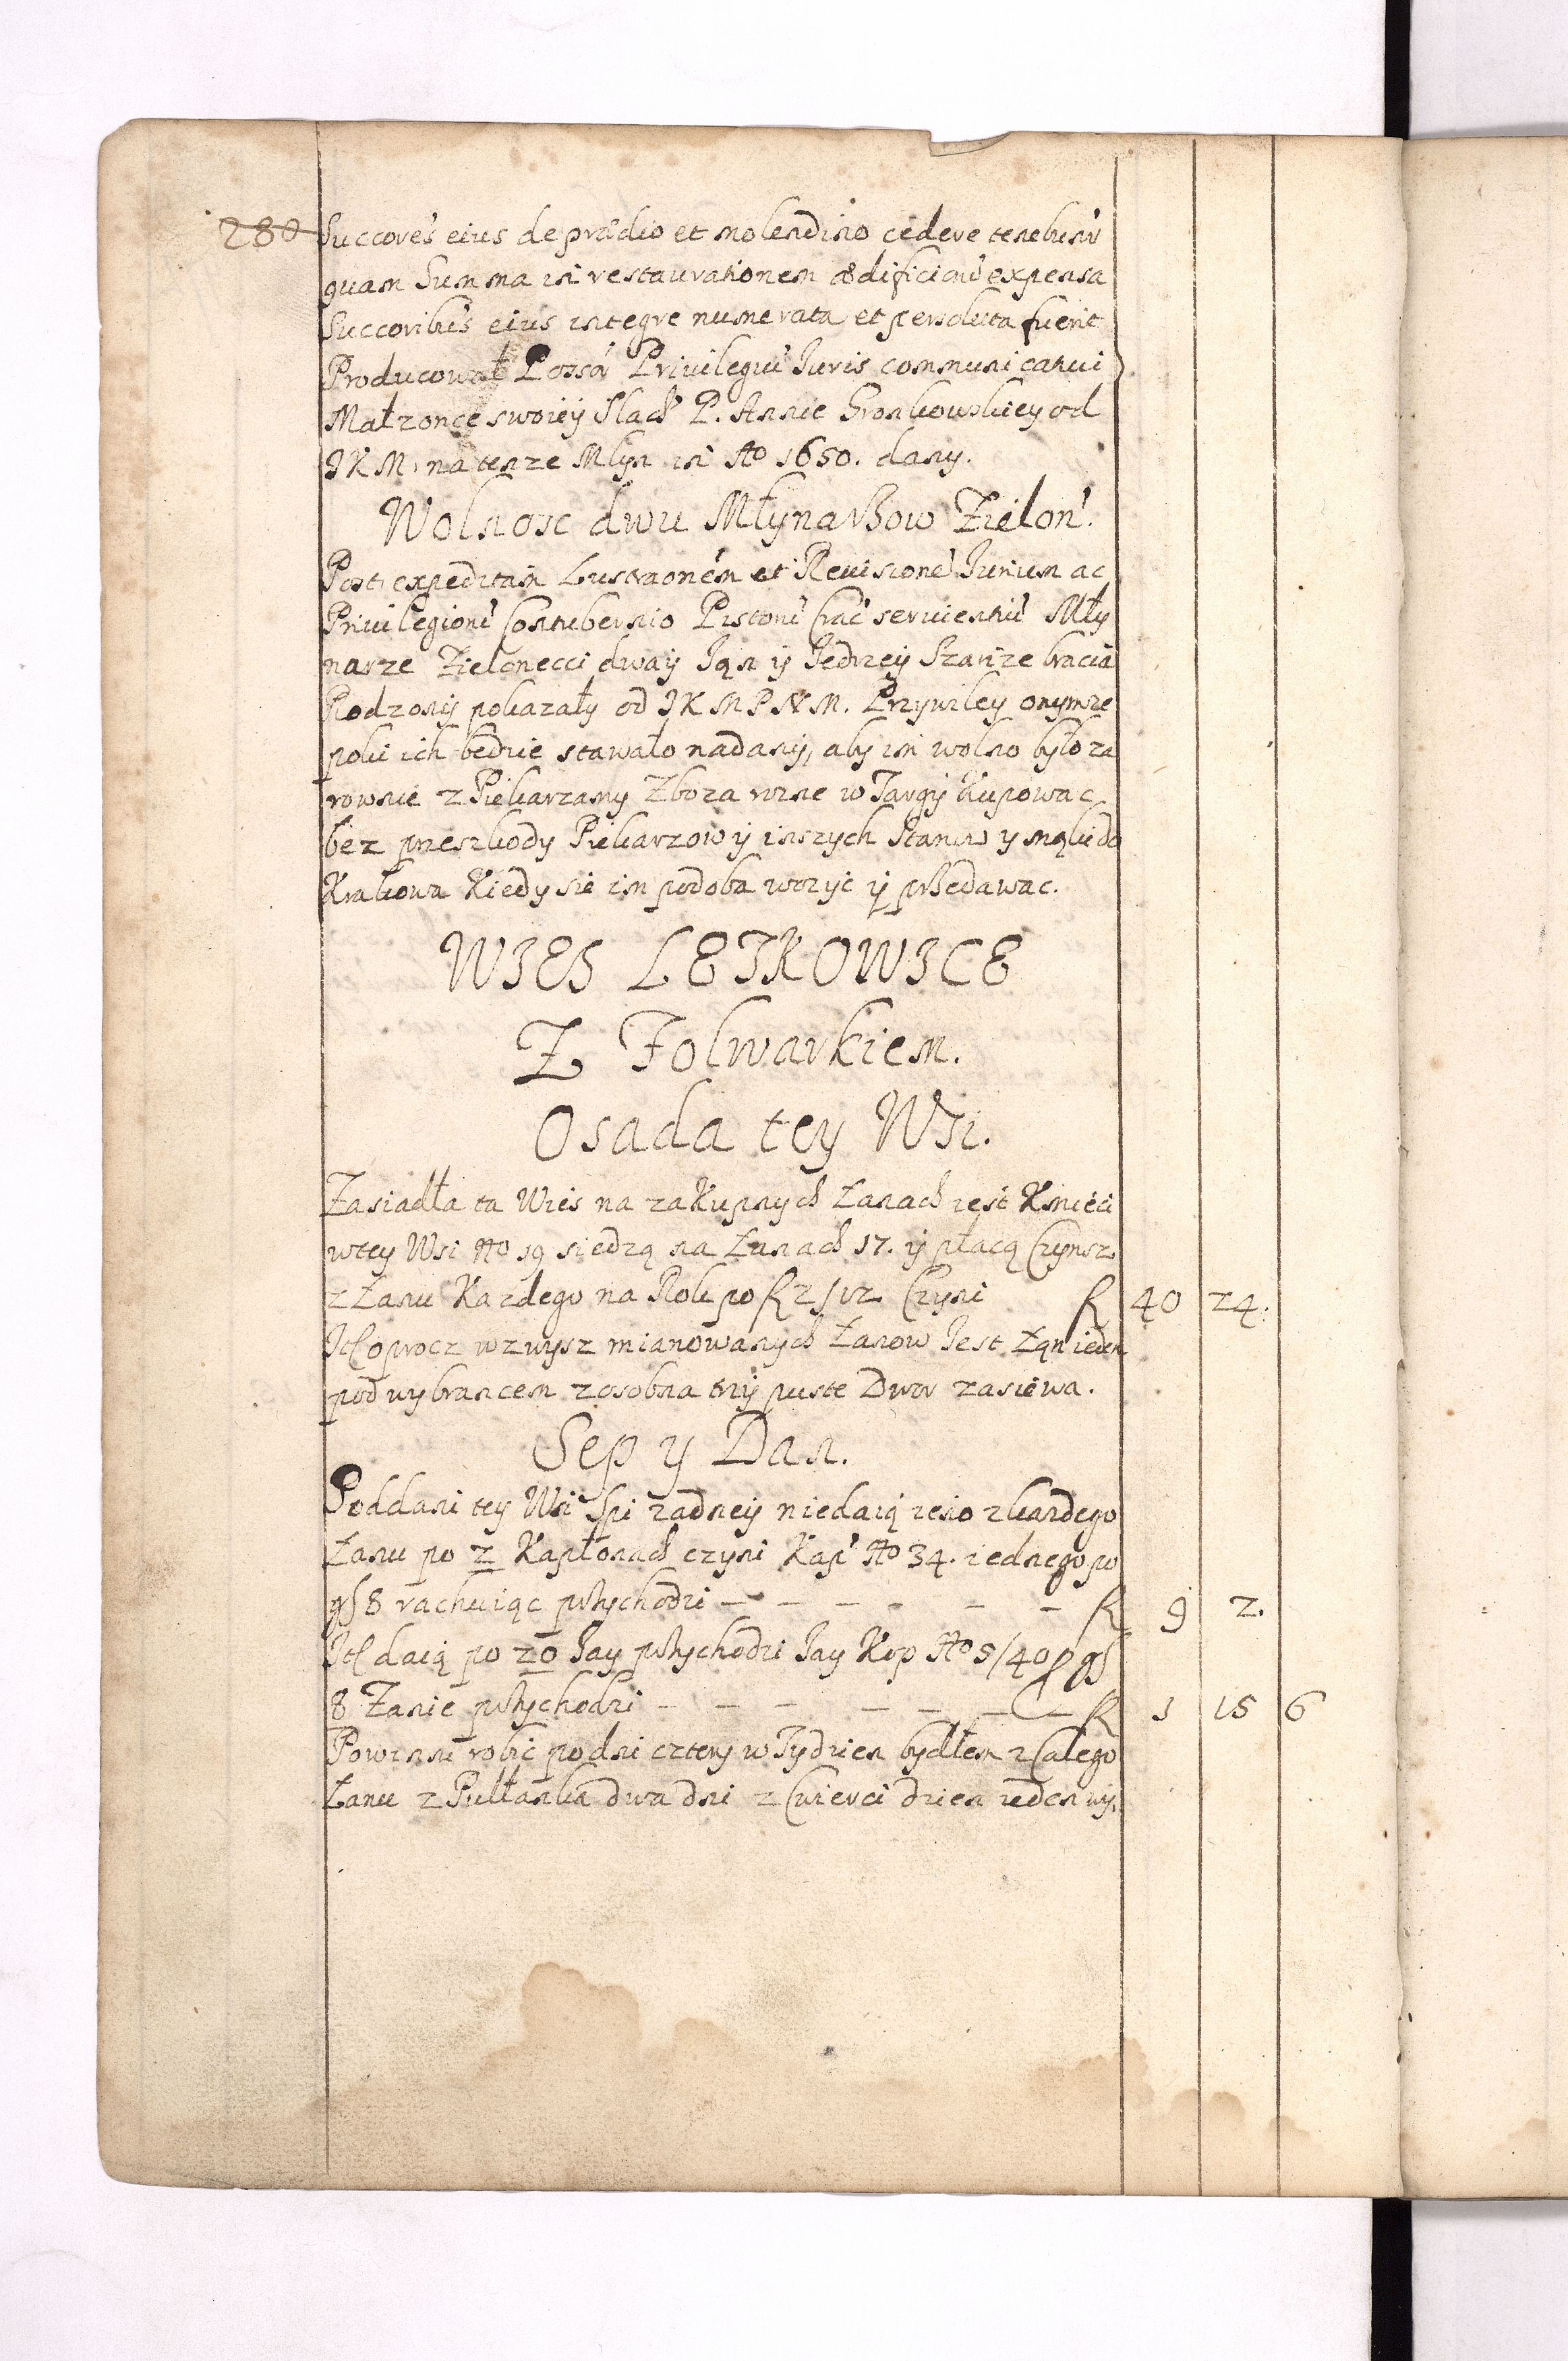 280
Succores eius de prædio et molendino cedere tenebunt
quam Summa in restaurationem ædificioru expensa
Succoribus eius integre numerata et persoluta fuerit
Producował Possor Privilegiu Iuris communicativi
Małzonce swoiey Slach P. Annie Gronkowskiey od
J K M. na tenze Młyn in Ao 1650. dany.
Wolnosc dwu Młynarzow Zielon.
Post expeditam Lustraonem et Revisione Iurium ac
Privilegioru Contubernio Pistoru Crac servientiu Mły
narze Zielonecci dway Jan y Jedrzey Szarize bracia
Rodzony pokazały od J K M P N M. Przywiley onymze
poki ich bedzie stawało nadany, aby im wolno było za
rownie z Piekarzamy Zboza rozne w Targy Kupowac
bez przeszkody Piekarzow y inszych Stanow y mąki do
Krakowa Kiedy sie im podoba wozyc y przedawac.
WIES LETKOWICE
Z Folwarkiem.
Osada tey Wsi.
Zasiadła ta Wies na zakupnych Łanach jest Kmieci
w tey Wsi No 19 siedzą na Łanach 17. y płacą Czynsz
z Łanu Kazdego na Rok po R 2/12 Czyni R 40 24.
Itl oprocz wzwysz mianowanych Łanow Jest Łąn ieden
pod wybrancem z osobna trzy puste Dwor zasiewa.
Sep y Dan.
Poddani tey Wsi Spi zadney niedaią ieno z kazdego
Łanu po 2 Kapłonach czyni Kap No 34. iednego po
gs 8 rachuiąc przychodzi – – – – – – R 9 2.
Itl daią po 20 Jay przychodzi Jay Kop No 5/40 p gs
8 Łanie przychodzi – – – – – – R 1 15 6
Powinni robic po dni cztery w Tydzien bydłem z Całego
Łanu z Pułłanka dwa dni z Cwierci dzien ieden wy.